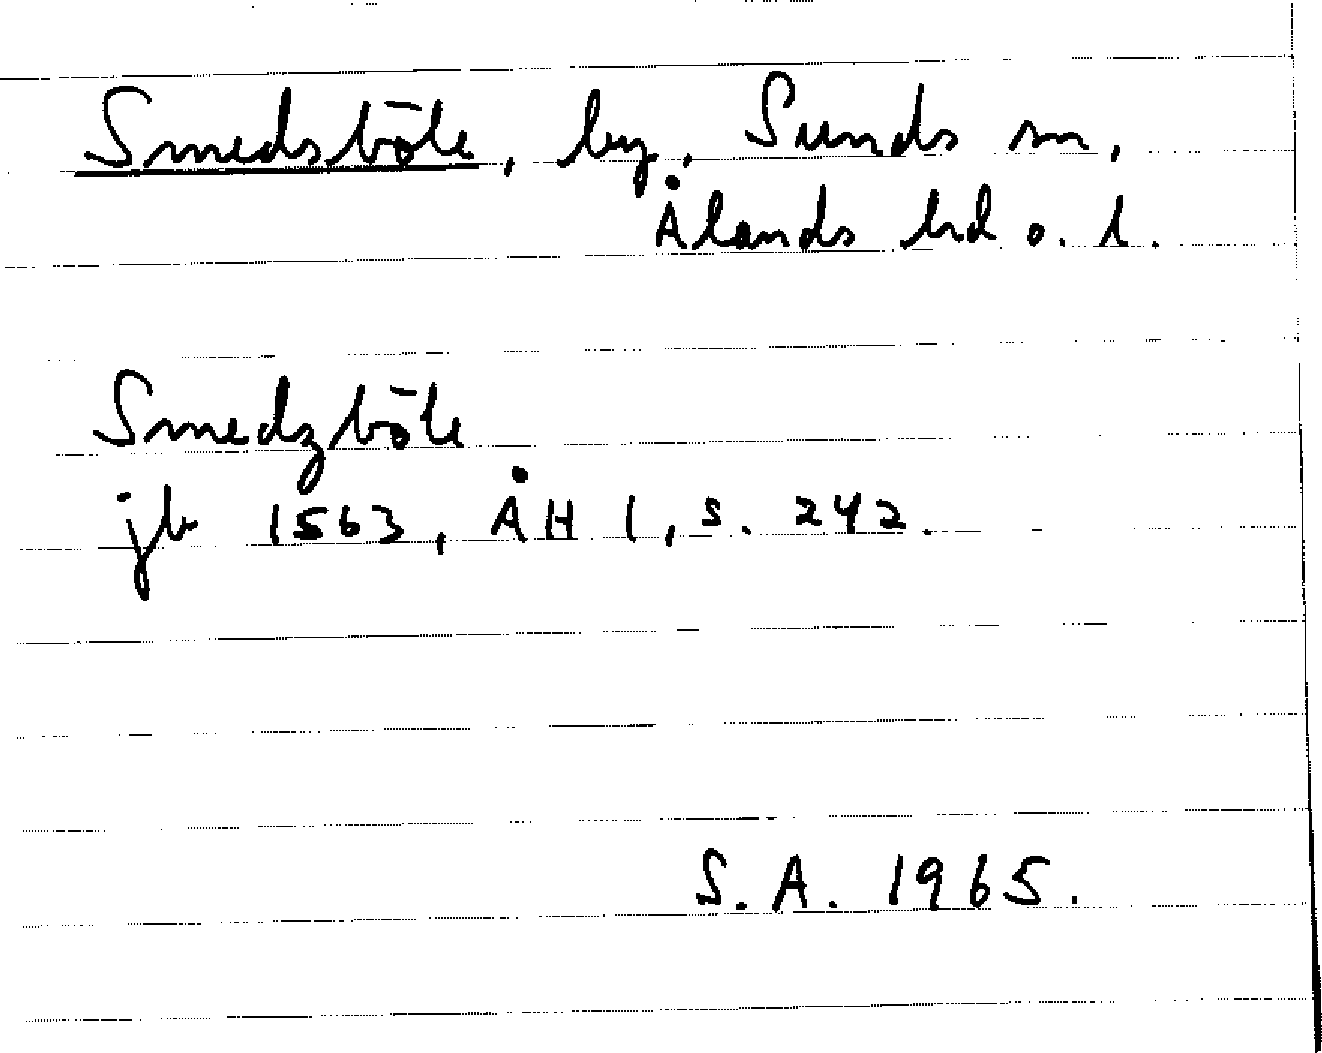 Smedsböle, by, Sunds sn,
Ålands hd o. l.
Smedzböle
jb 1563, ÅH 1, s. 242.
S. A. 1965.